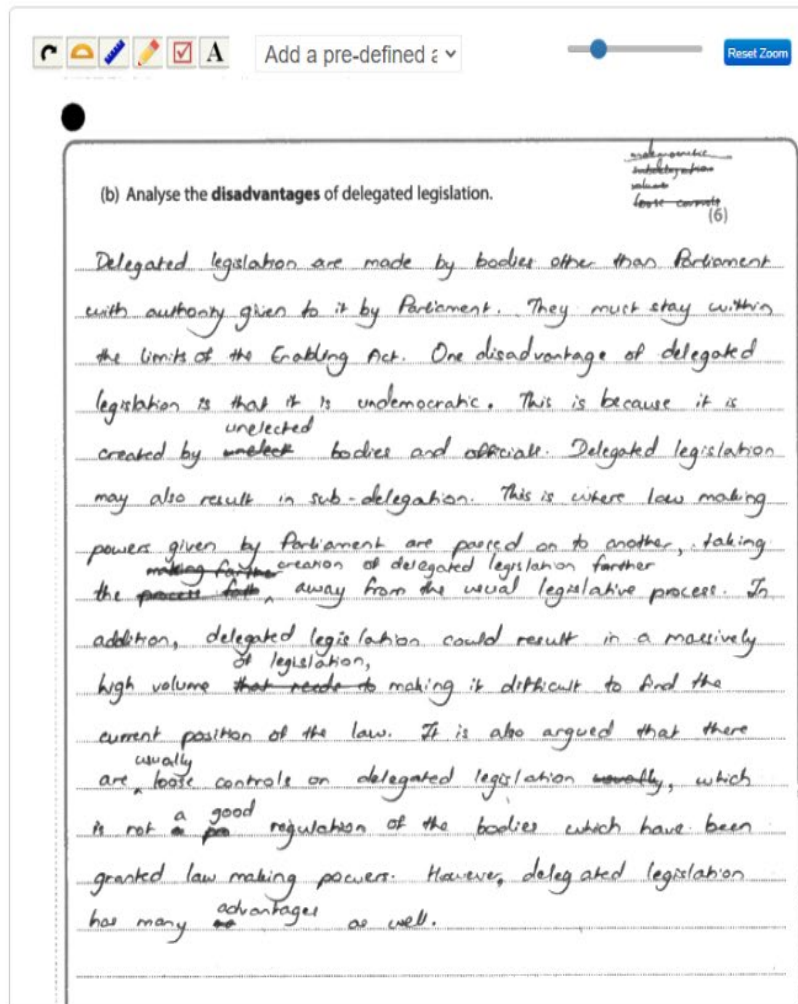 A
Add a pre-defined a
Reset Zoom
undemocratic
subdelegation
volume
loose controls
(b) Analyse the disadvantages of delegated legislation.
(6)
Delegated legislation are made by bodies other than Parliament
with authority given to it by Parliament. They must stay within
the limits of the Enabling Act. One disadvantage of delegated
legislation is that it is undemocratic. This is because it is
unelected
created by unelect bodies and officials. Delegated legislation
may also result in sub-delegation. This is where law making
powers given by Parliament are passed on to another, taking
making farther creation of delegated legislation farther
the process away from the usual legislative process. In
addition, delegated legislation could result in a massively
of legislation,
high volume that needs to making it difficult to find the
current position of the law. It is also argued that there
usually
are loose controls on delegated legislation usually, which
a good
is not a regulation of the bodies which have been
granted law making powers. However, delegated legislation
advantages
has many as well.